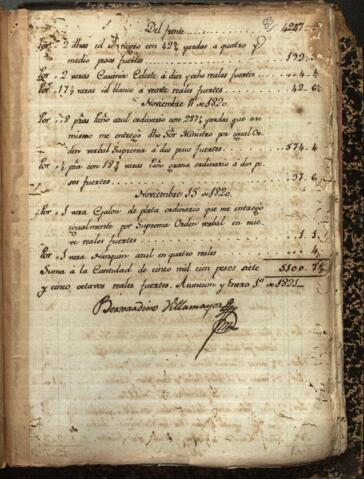 Del frente 4247
Por 2 dhas id negro con 42¾ yardas a quatro y
medio pesos fuertes 192
Por 2 varas Casimir Celeste á diez y ocho reales fuertes 4.4
Por 17½ varas id blanco a veinte reales fuertes 42.6½
Noviembre 11 de 1820.
Por 8 pzas Paño azul ordinario con 287¼ yardas que asi
mismo me entrego dho Sõr Ministro por igual Or
den verbal Suprema á dos pesos fuertes 574.4
Por ½ pza con 18¾ varas Paño grana ordinario á dos pe
sos fuertes 37.6
Noviembre 15 de 1820.
Por 1 vara Galon de plata ordinario que me entregó
igualmente por Suprema Orden verbal en nue
ve reales fuertes 1.1
Por 1 vara Nanquin azul en quatro reales 4
Suma á la Cantidad de cinco mil cien pesos siete 5100.7
y cinco octavos reales fuertes. Asuncion y Enero 1º de 1821
Bernardino Villamayor